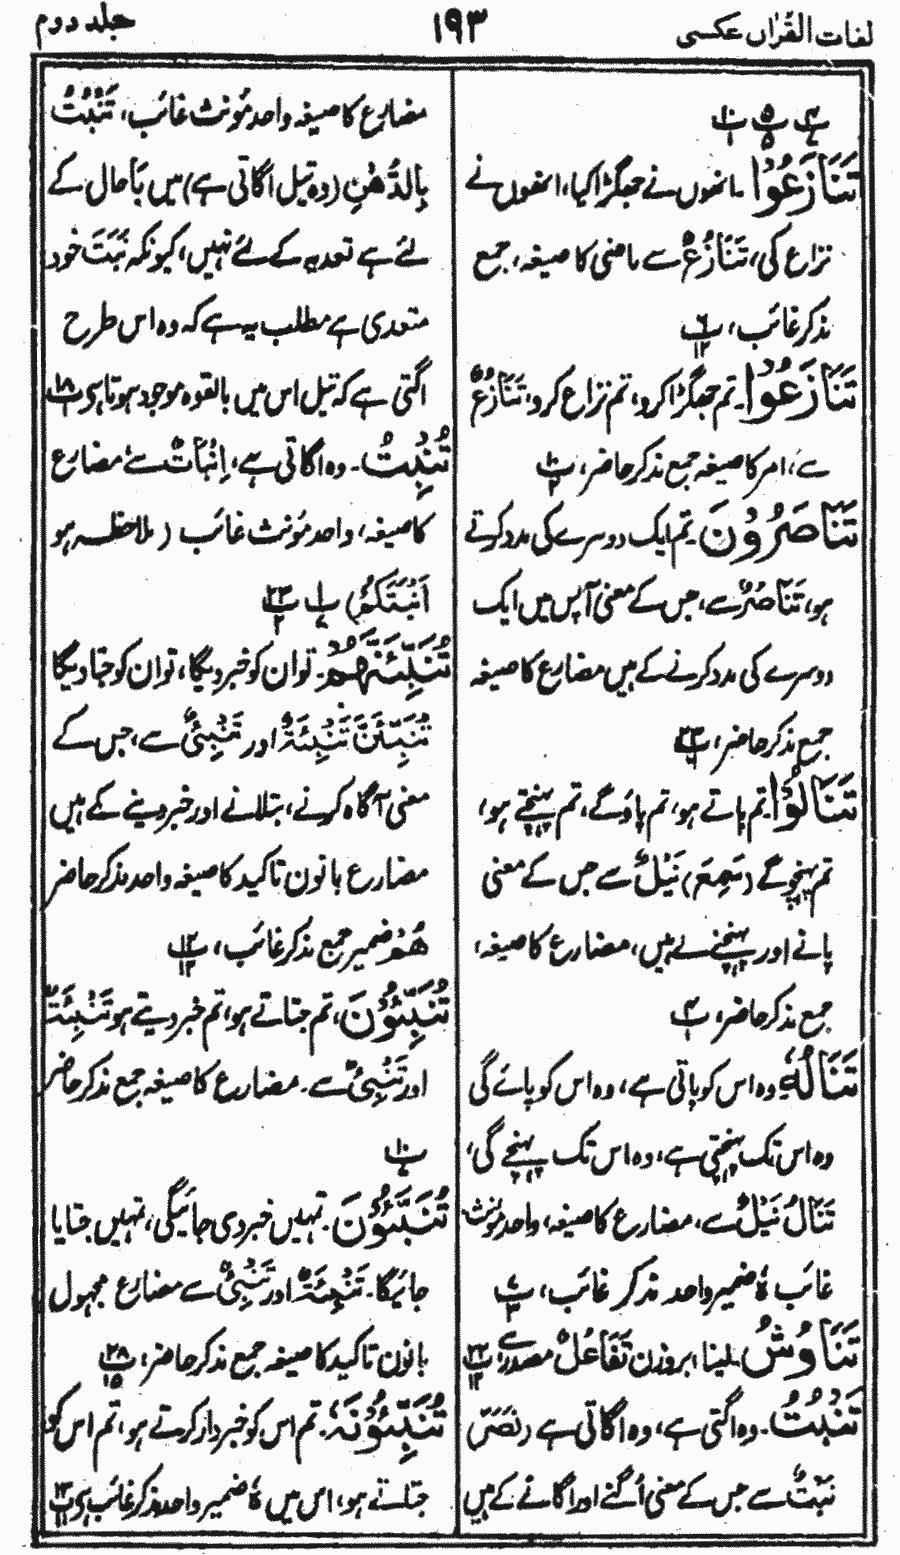 لغات القرآن عکسی
۱۹۳
جلد دوم
۴/۷ پ ۵/۵ پ ۱۰/۱ پ
تَنَازَعُوْا ۔ انھوں نے جھگڑا کیا، انھوں نے
نزاع کی، تَنَازُعٌ سے ماضی کا صیغہ، جمع
مذکر غائب، پ ۶/۱۲
تَنَازَعُوْا ۔ تم جھگڑا کرو، تم نزاع کرو، تَنَازُعٌ
سے، امر کا صیغہ جمع مذکر حاضر، پ ۱۰/۲
تَنَاصَرُوْنَ ۔ تم ایک دوسرے کی مدد کرتے
ہو، تَنَاصُرٌ سے، جس کے معنی آپس میں ایک
دوسرے کی مدد کرنے کے ہیں مضارع کا صیغہ
جمع مذکر حاضر، پ ۲۳
تَنَالُوْا تم پاتے ہو، تم پاؤگے، تم پہنچتے ہو،
تم پہنچوگے (سَمِعَ) نَیْلٌ سے جس کے معنی
پانے اور پہنچنے کے ہیں، مضارع کا صیغہ،
جمع مذکر حاضر، پ ۴/۱
تَنَالُہٗ وہ اس کو پاتی ہے، وہ اس کو پائے گی
وہ اس تک پہنچتی ہے، وہ اس تک پہنچے گی،
تَنَالُ نَیْلٌ سے، مضارع کا صیغہ، واحد مؤنث،
غائب ہٗ ضمیر واحد مذکر غائب، پ ۷/۳
تَنَاوُشٌ ۔ لینا ابروزن تَفَاعُلٌ مصدر ہے، پ ۲۲/۱۲
تَنْبُتُ ۔ وہ اگتی ہے، وہ اگاتی ہے (نَصَرَ)
نَبْتٌ سے جس کے معنی اُگنے اور اگانے کے ہیں
مضارع کا صیغہ واحد مؤنث غائب، تَنْبُتُ
بِالدُّهْنِ (وہ تیل اگاتی ہے) میں بَا حال کے
لئے ہے تعدیہ کے لئے نہیں، کیونکہ نَبَتَ خود
متعدی ہے مطلب یہ ہے کہ وہ اس طرح
اگتی ہے کہ تیل اس میں بالقوہ موجود ہوتا ہی پ ۱۸
تُنْبِتُ ۔ وہ اگاتی ہے، اِنْبَاتٌ سے مضارع
کا صیغہ، واحد مؤنث غائب (ملاحظہ ہو
اَنْبَتَكُمْ) پ ۱/۷ پ ۲۳/۲
تُنَبِّئَنَّهُمْ ۔ تو ان کو خبر دیگا، تو ان کو جتا دیگا
تُنَبِّئَنَّ تَنْبِئَةٌ اور تَنْبِیْئٌ سے، جس کے
معنی آگاہ کرنے، بتلانے اور خبر دینے کے ہیں
مضارع بانون تاکید کا صیغہ واحد مذکر حاضر
هُمْ ضمیر جمع مذکر غائب، پ ۱۲/۱۲
تُنَبِّئُوْنَ، تم جتاتے ہو، تم خبر دیتے ہو تَنْبِئَةٌ
اور تَنْبِیْئٌ سے ۔ مضارع کا صیغہ جمع مذکر حاضر
پ ۱۰/۷
تُنَبَّؤُنَّ ۔ تمہیں خبر دی جائیگی، تمہیں جتایا
جائیگا ۔ تَنْبِئَةٌ اور تَنْبِیْئٌ سے مضارع مجہول
بانون تاکید کا صیغہ جمع مذکر حاضر، پ ۲۸/۱۵
تُنَبِّئُوْنَہٗ ۔ تم اس کو خبردار کرتے ہو، تم اس کو
جتلاتے ہو، اس میں ہٗ ضمیر واحد مذکر غائب ہی پ ۱۳/۱۱